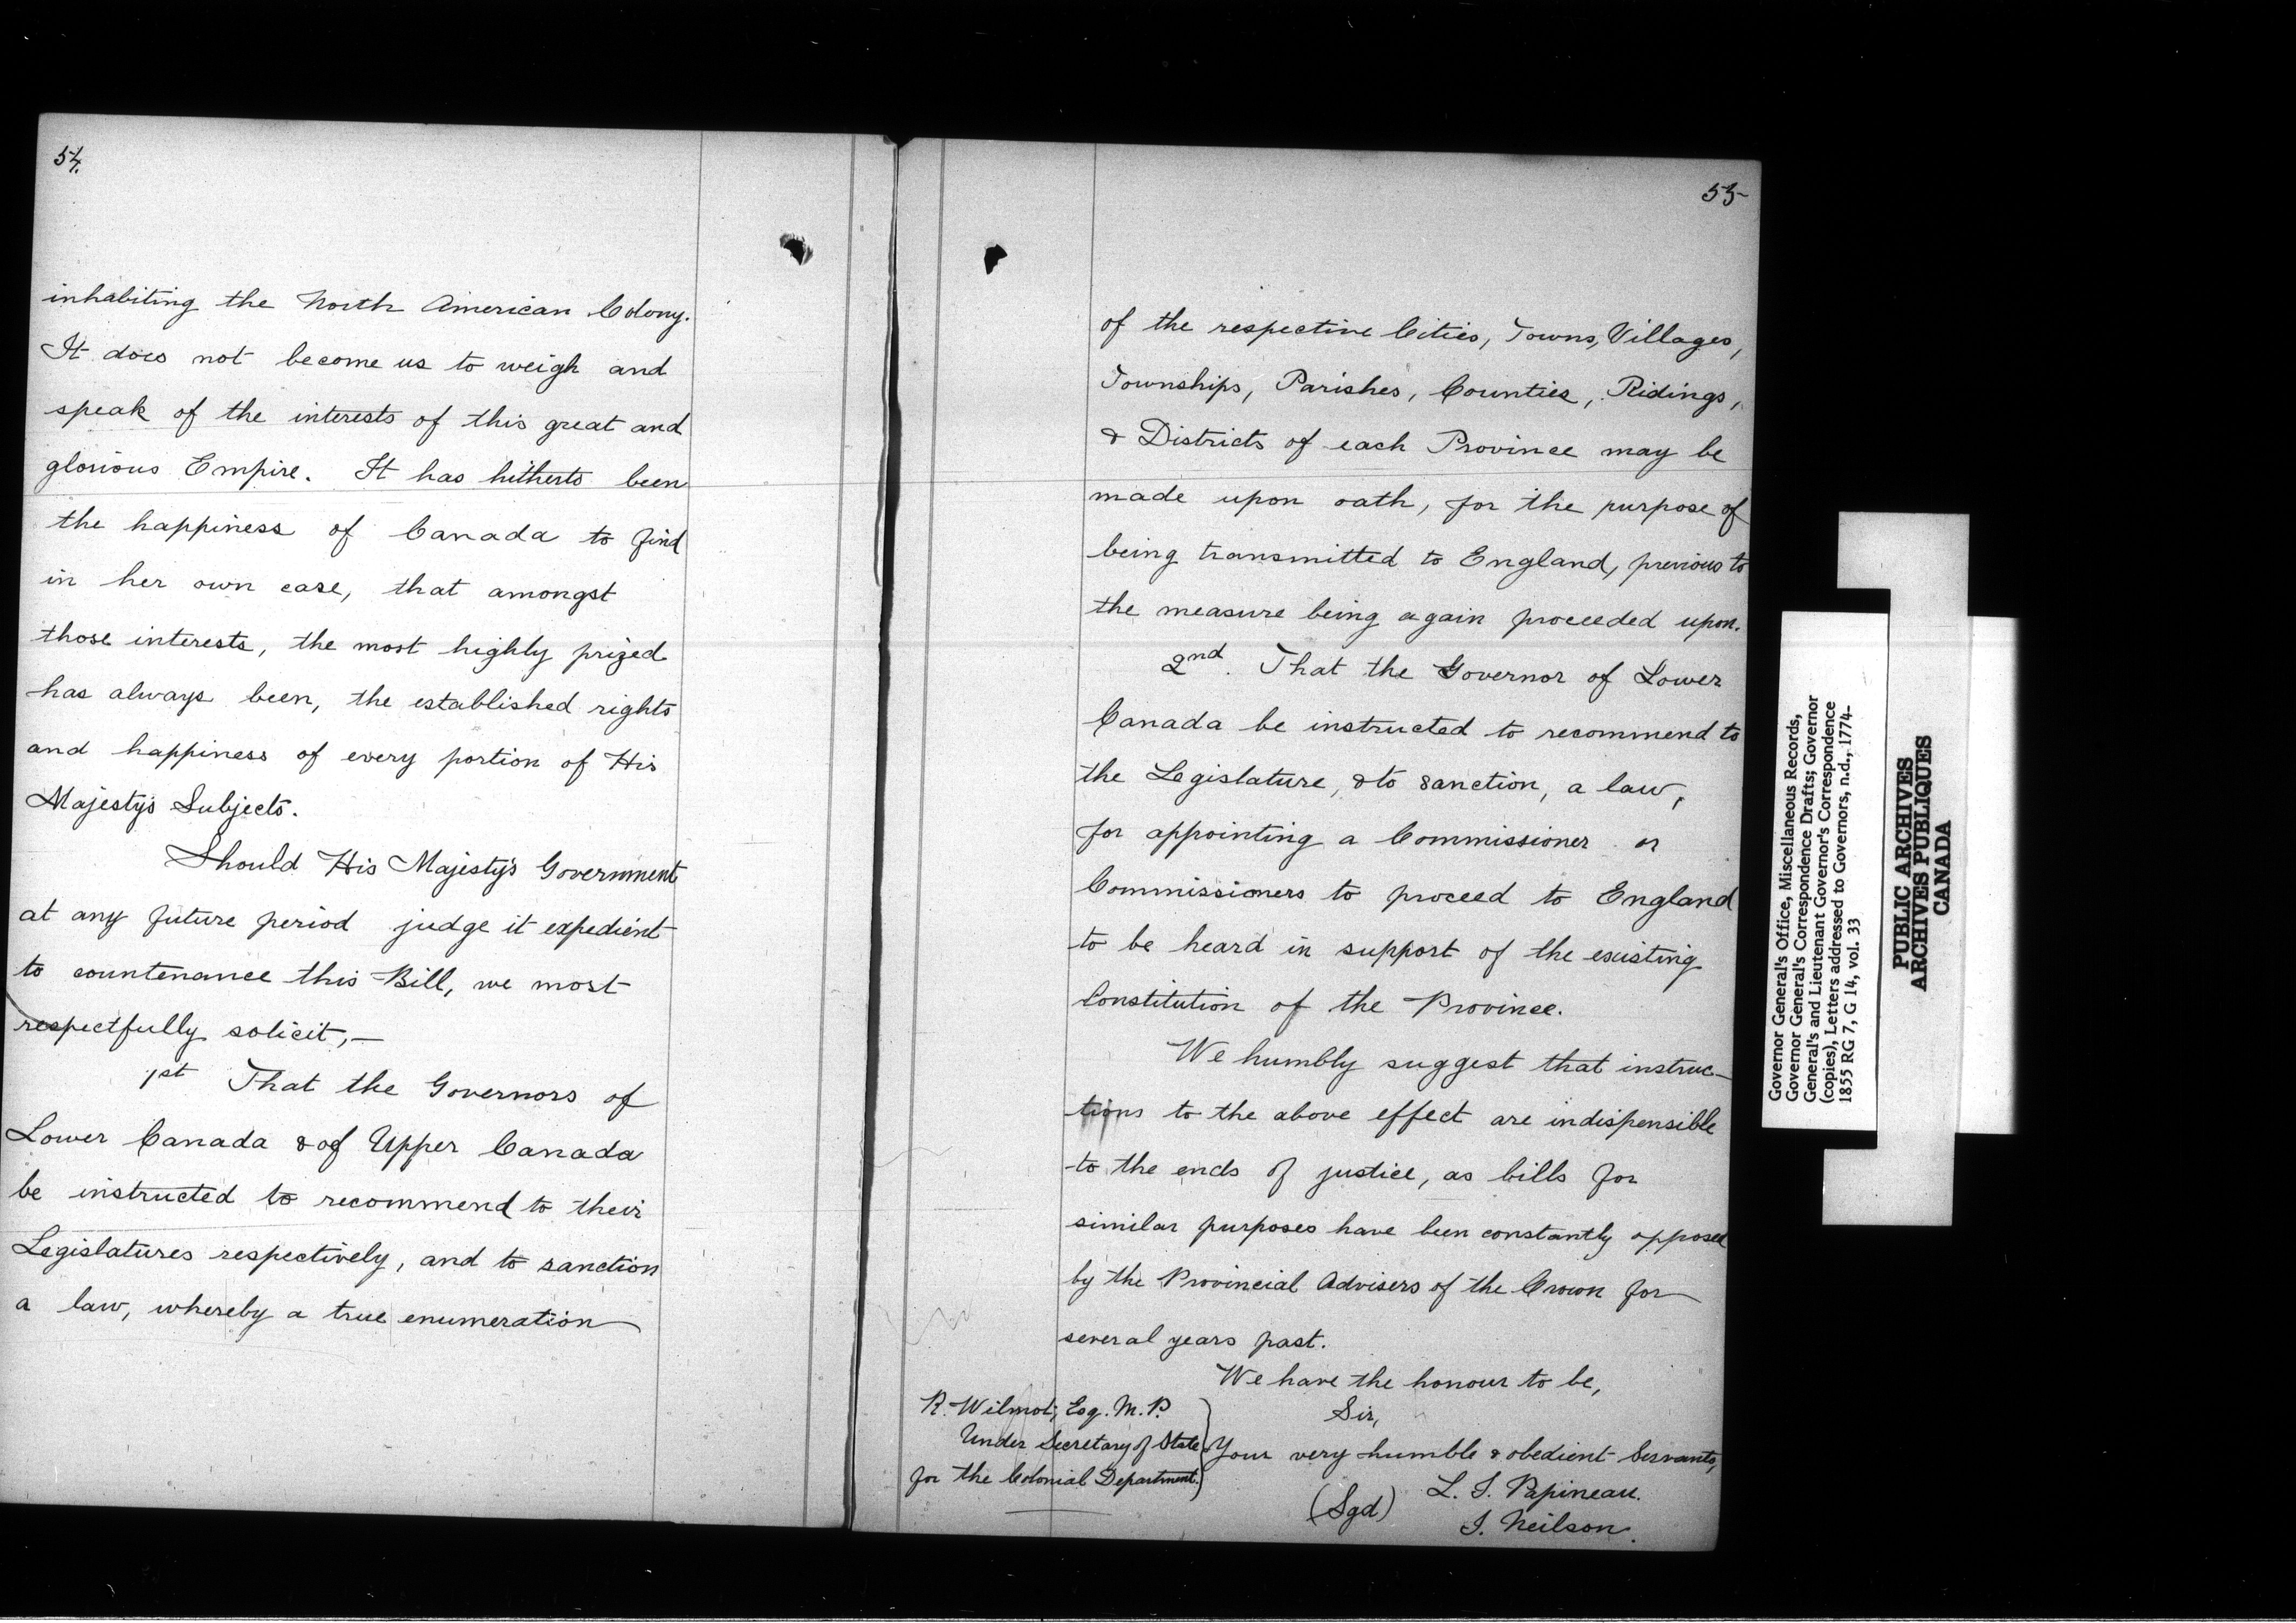 54.
inhabiting the North American Colony.
It does not become us to weigh and
speak of the interests of this great and
glorious Empire. It has hitherto been
the happiness of Canada to find
in her own case, that amongst
those interests, the most highly prized
has always been, the established rights
and happiness of every portion of His
Majesty's Subjects.
Should His Majesty's Government
at any future period judge it expedient
to countenance this Bill, we most
respectfully solicit,—
1st That the Governors of
Lower Canada & of Upper Canada
be instructed to recommend to their
Legislatures respectively, and to sanction
a law, whereby a true enumeration
55
of the respective Cities, Towns, Villages,
Townships, Parishes, Counties, Ridings,
& Districts of each Province may be
made upon oath, for the purpose of
being transmitted to England, previous to
the measure being again proceeded upon.
2nd. That the Governor of Lower
Canada be instructed to recommend to
the Legislature, & to sanction, a law,
for appointing a Commissioner or
Commissioners to proceed to England
to be heard in support of the existing
Constitution of the Province.
We humbly suggest that instruc-
tions to the above effect are indispensible
to the ends of justice, as bills for
similar purposes have been constantly opposed
by the Provincial Advisers of the Crown for
several years past.
We have the honour to be,
Sir,
Your very humble & obedient Servants,
(Sgd) L. J. Papineau.
J. Neilson.
R. Wilmot, Esq. M.P.
Under Secretary of State
for the Colonial Department.
Governor General's Office, Miscellaneous Records,
Governor General's Correspondence Drafts; Governor
General's and Lieutenant Governor's Correspondence
(copies), Letters addressed to Governors, n.d., 1774-
1855 RG 7, G 14, vol. 33
PUBLIC ARCHIVES
ARCHIVES PUBLIQUES
CANADA